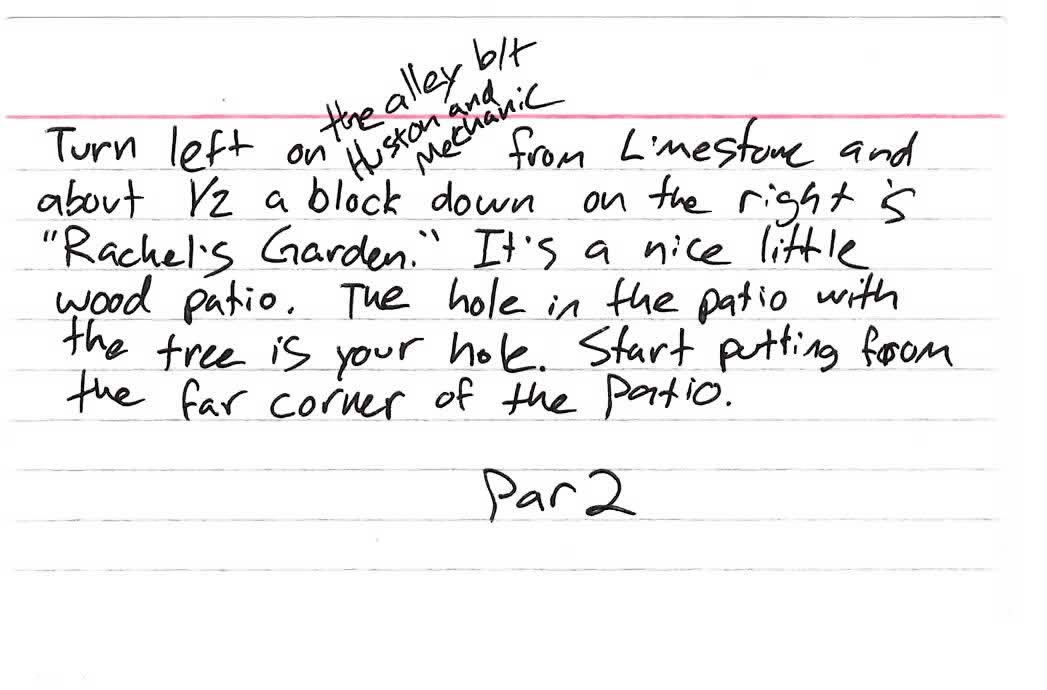 the alley b/t
Huston and
Mechanic
Turn left on from Limestone and
about 1/2 a block down on the right is
"Rachel's Garden." It's a nice little
wood patio. The hole in the patio with
the tree is your hole. Start putting from
the far corner of the patio.
Par 2